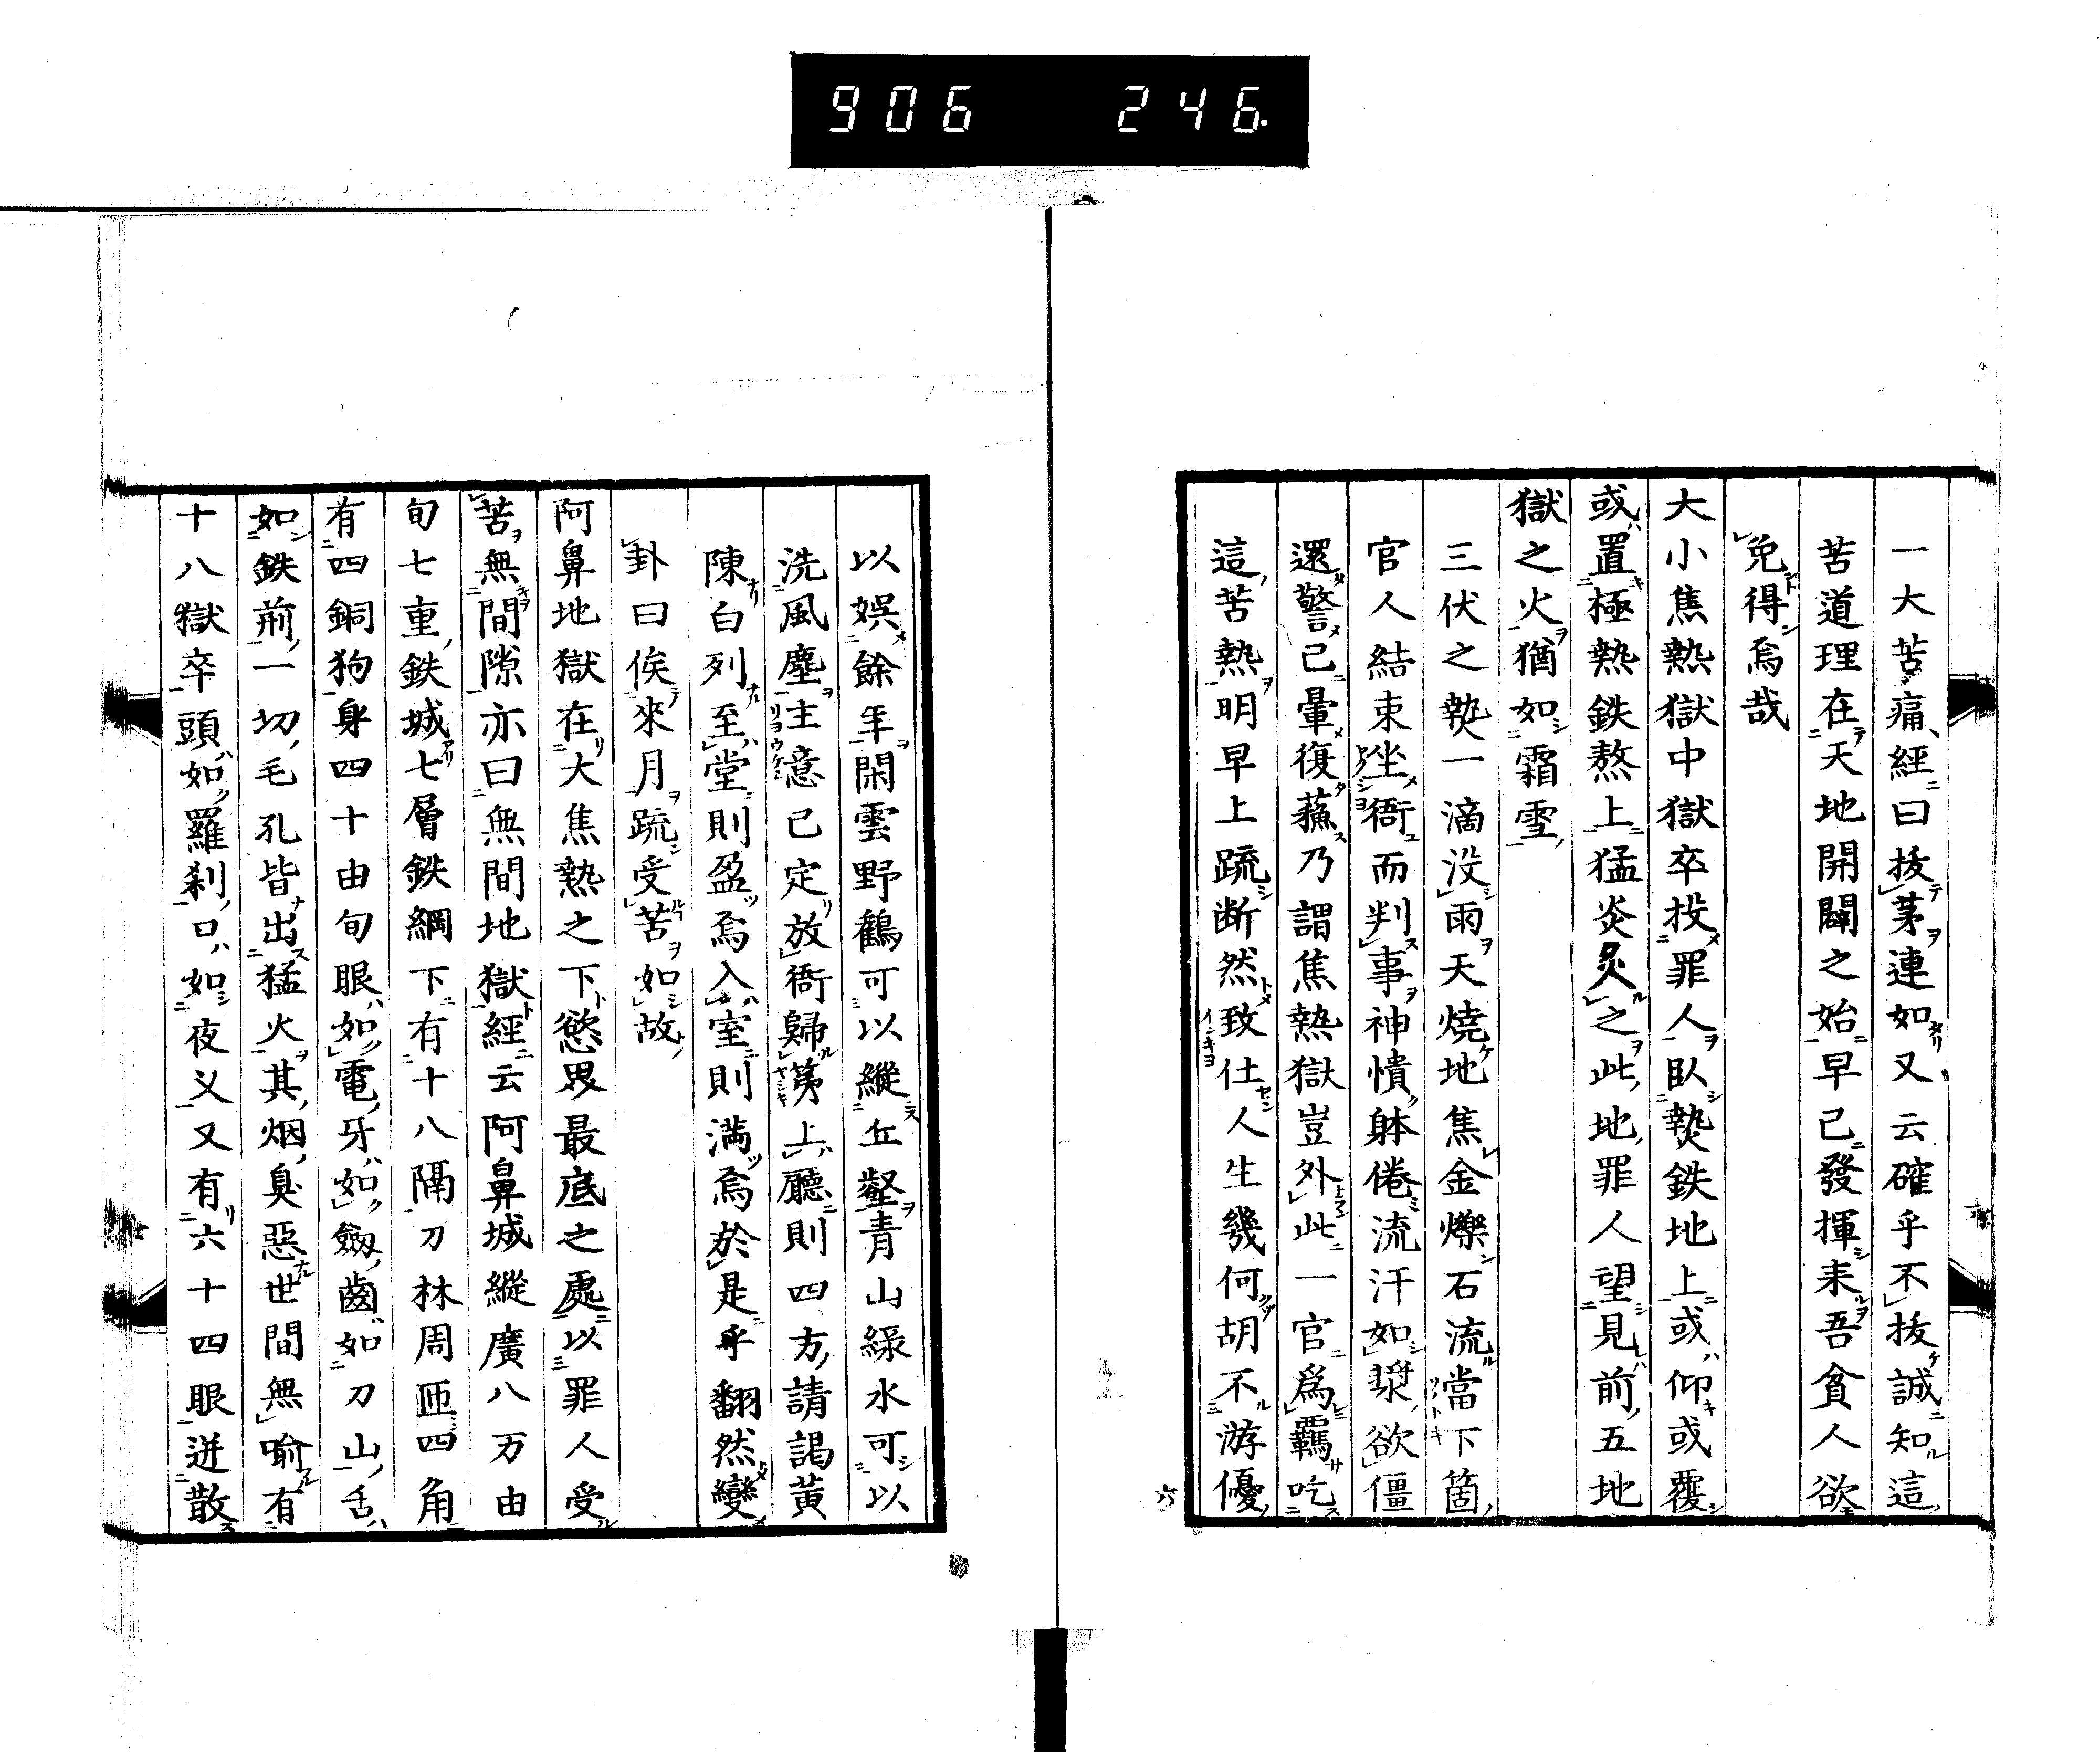 906 246
一大苦痛經曰拔茅連如又云確乎不拔誠知這
苦道理在天地開闢之始早已發揮来吾貧人欲
免得焉哉
大小焦熱獄中獄卒投罪人臥熱鉄地上或仰或覆
或置極熱鉄熬上猛炎炙之此地罪人望見前五地
獄之火猶如霜雪
三伏之熱一滴没雨天燒地焦金爍石流當下箇
官人結束坐衙而判事神憒躰倦流汗如漿欲僵
還警已暈復蘓乃謂焦熱獄豈外此一官爲羈吃
這苦熱明早上疏断然致仕人生幾何胡不游優
六
以娯餘年閑雲野鶴可以縱丘壑青山緑水可以
洗風塵主意已定放衙歸第上廳則四方請謁黄
陳白列至堂則盈焉入室則満焉於是乎翻然變
卦曰俟來月疏受苦如故
阿鼻地獄在大焦熱之下慾界最底之處以罪人受
苦無間隙亦曰無間地獄經云阿鼻城縱廣八万由
旬七重鉄城七層鉄網下有十八隔刀林周匝四角
有四銅狗身四十由旬眼如電牙如劔齒如刀山舌
如鉄荊一切毛孔皆出猛火其烟臭惡世間無喻有
十八獄卒頭如羅刹口如夜叉又有六十四眼迸散